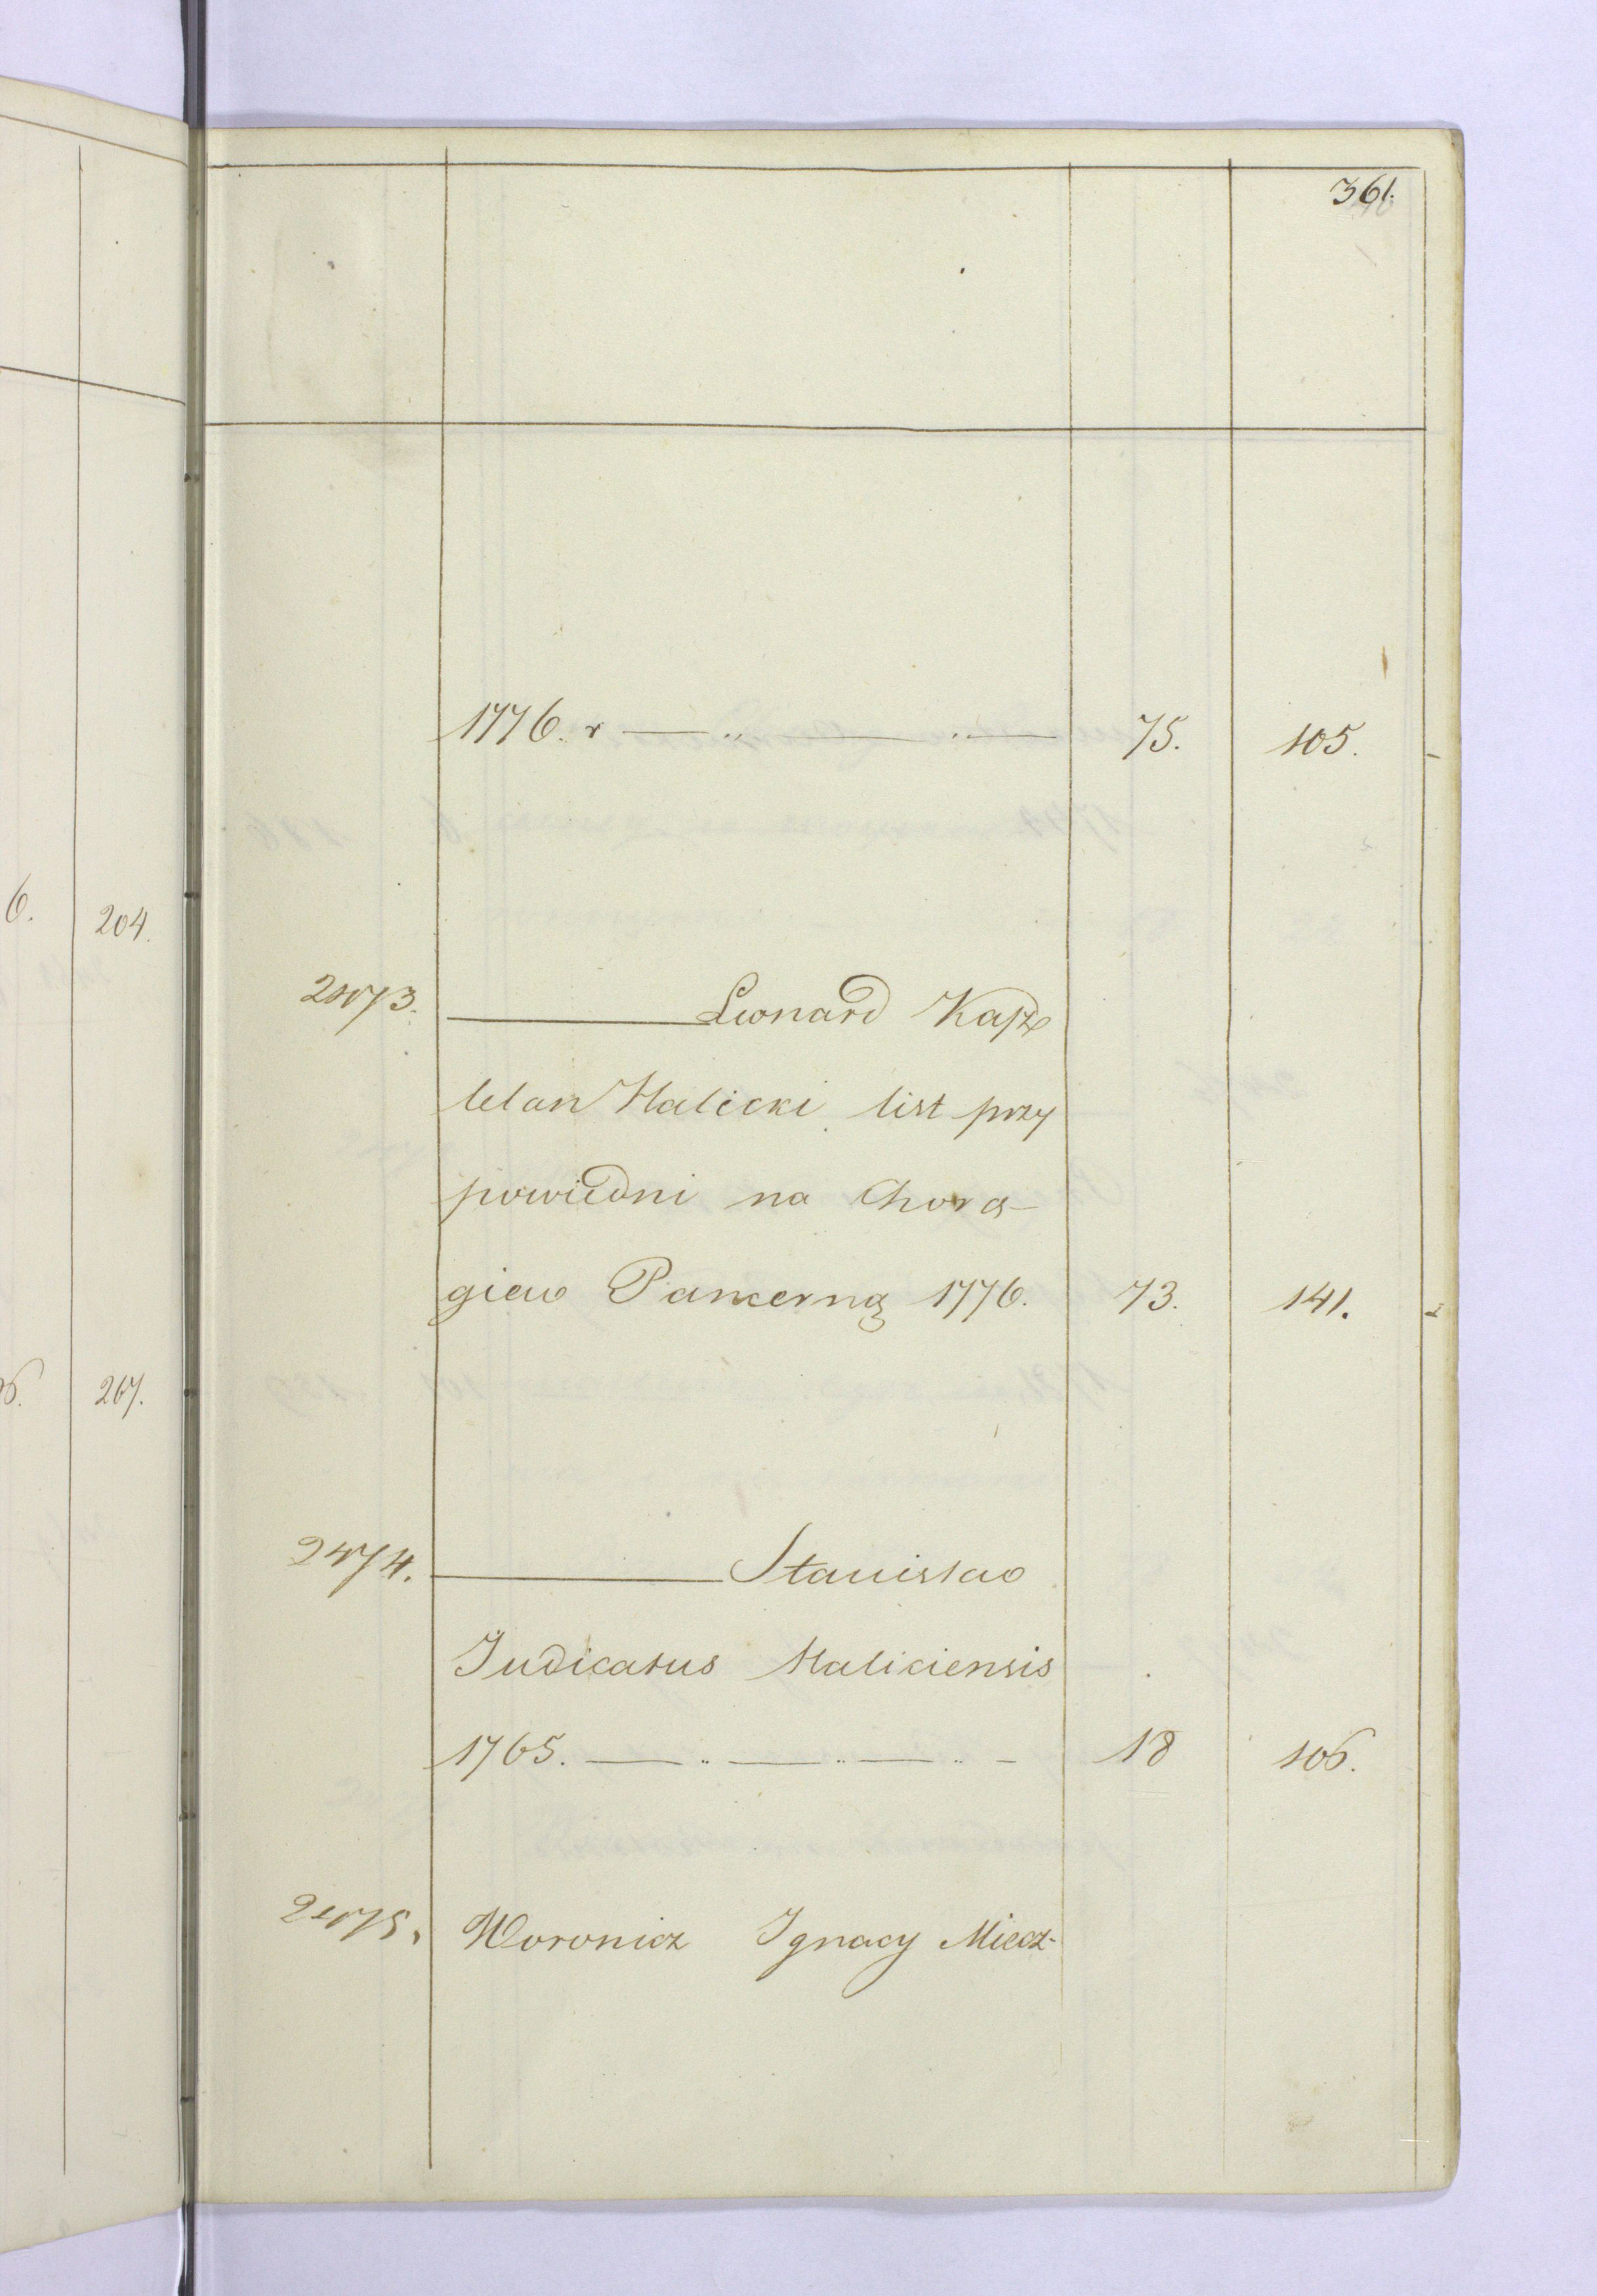 361.
1776. r — „ — „ — 75. 105.
6. 204.
2473. — Leonard Kasz
telan Halicki list przy
powiedni na Chorą-
giew Pancerną 1776. 73. 141.
267.
2474. — Stanisław
Judicatus Haliciensis
1765. — „ — „ — „ — 18 106.
2475. Woronicz Ignacy Miecz-